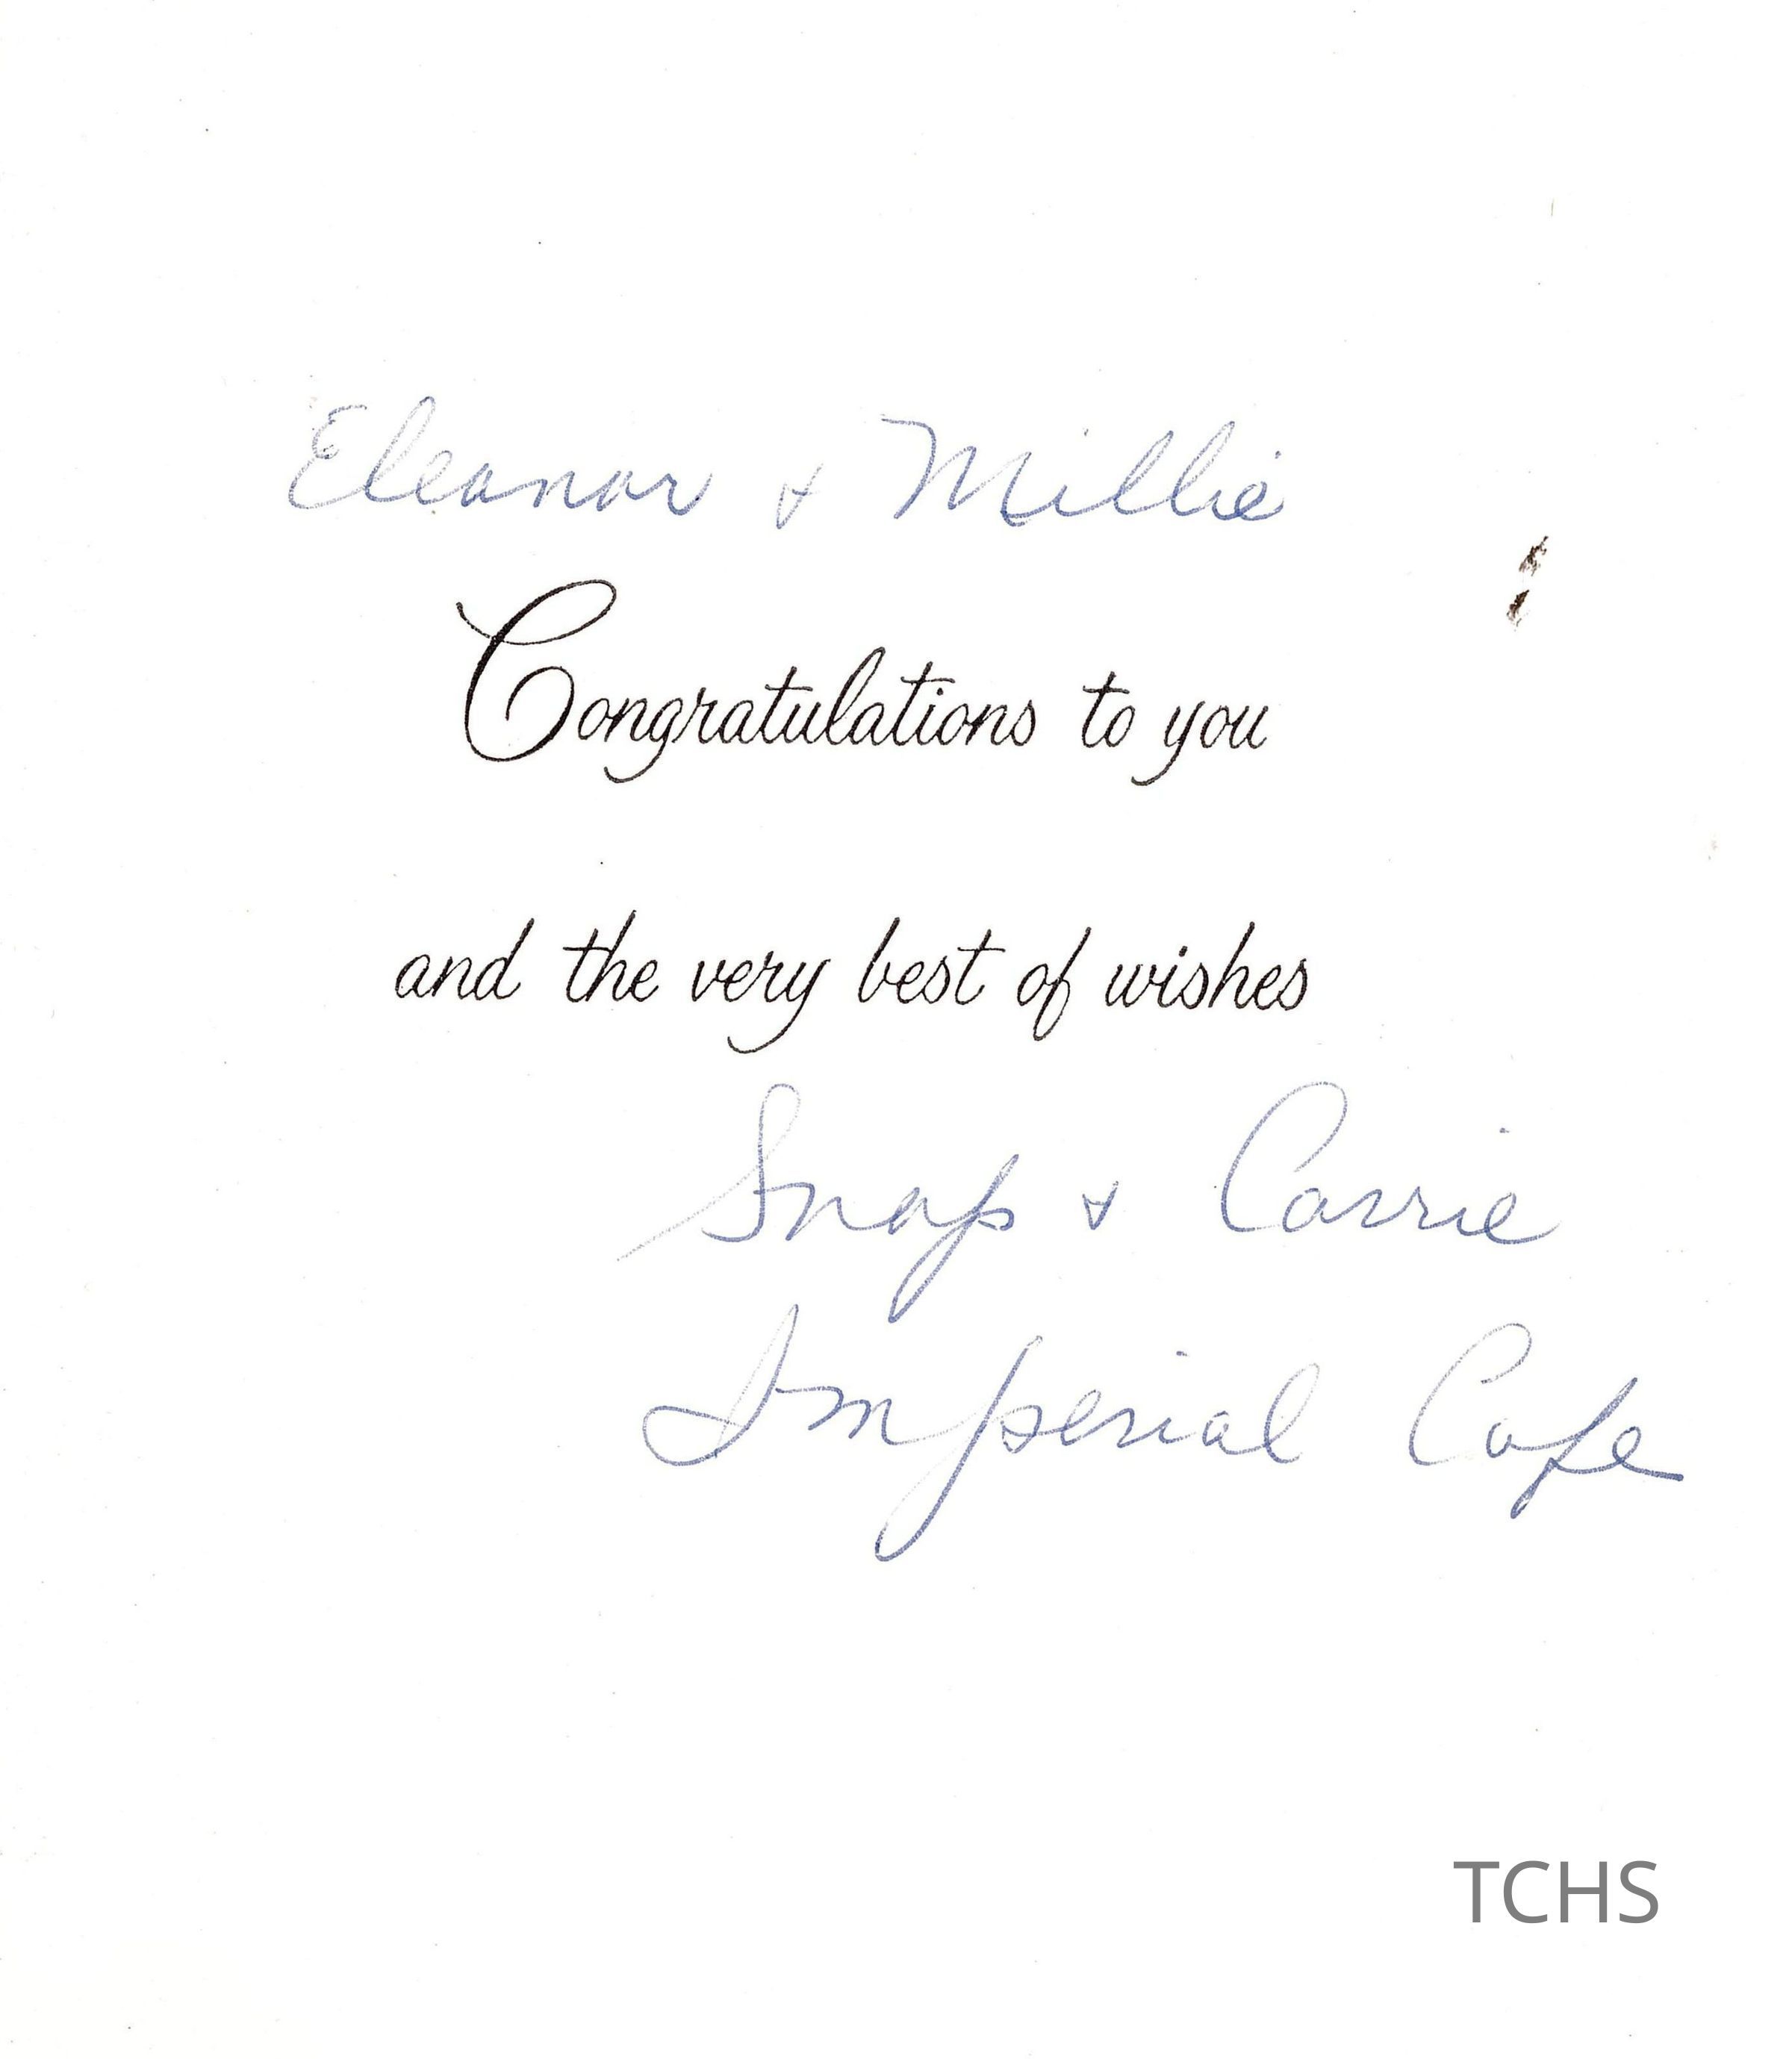 Eleanor + Millie
Congratulations to you
and the very best of wishes
Snap + Carrie
Imperial Cafe
TCHS